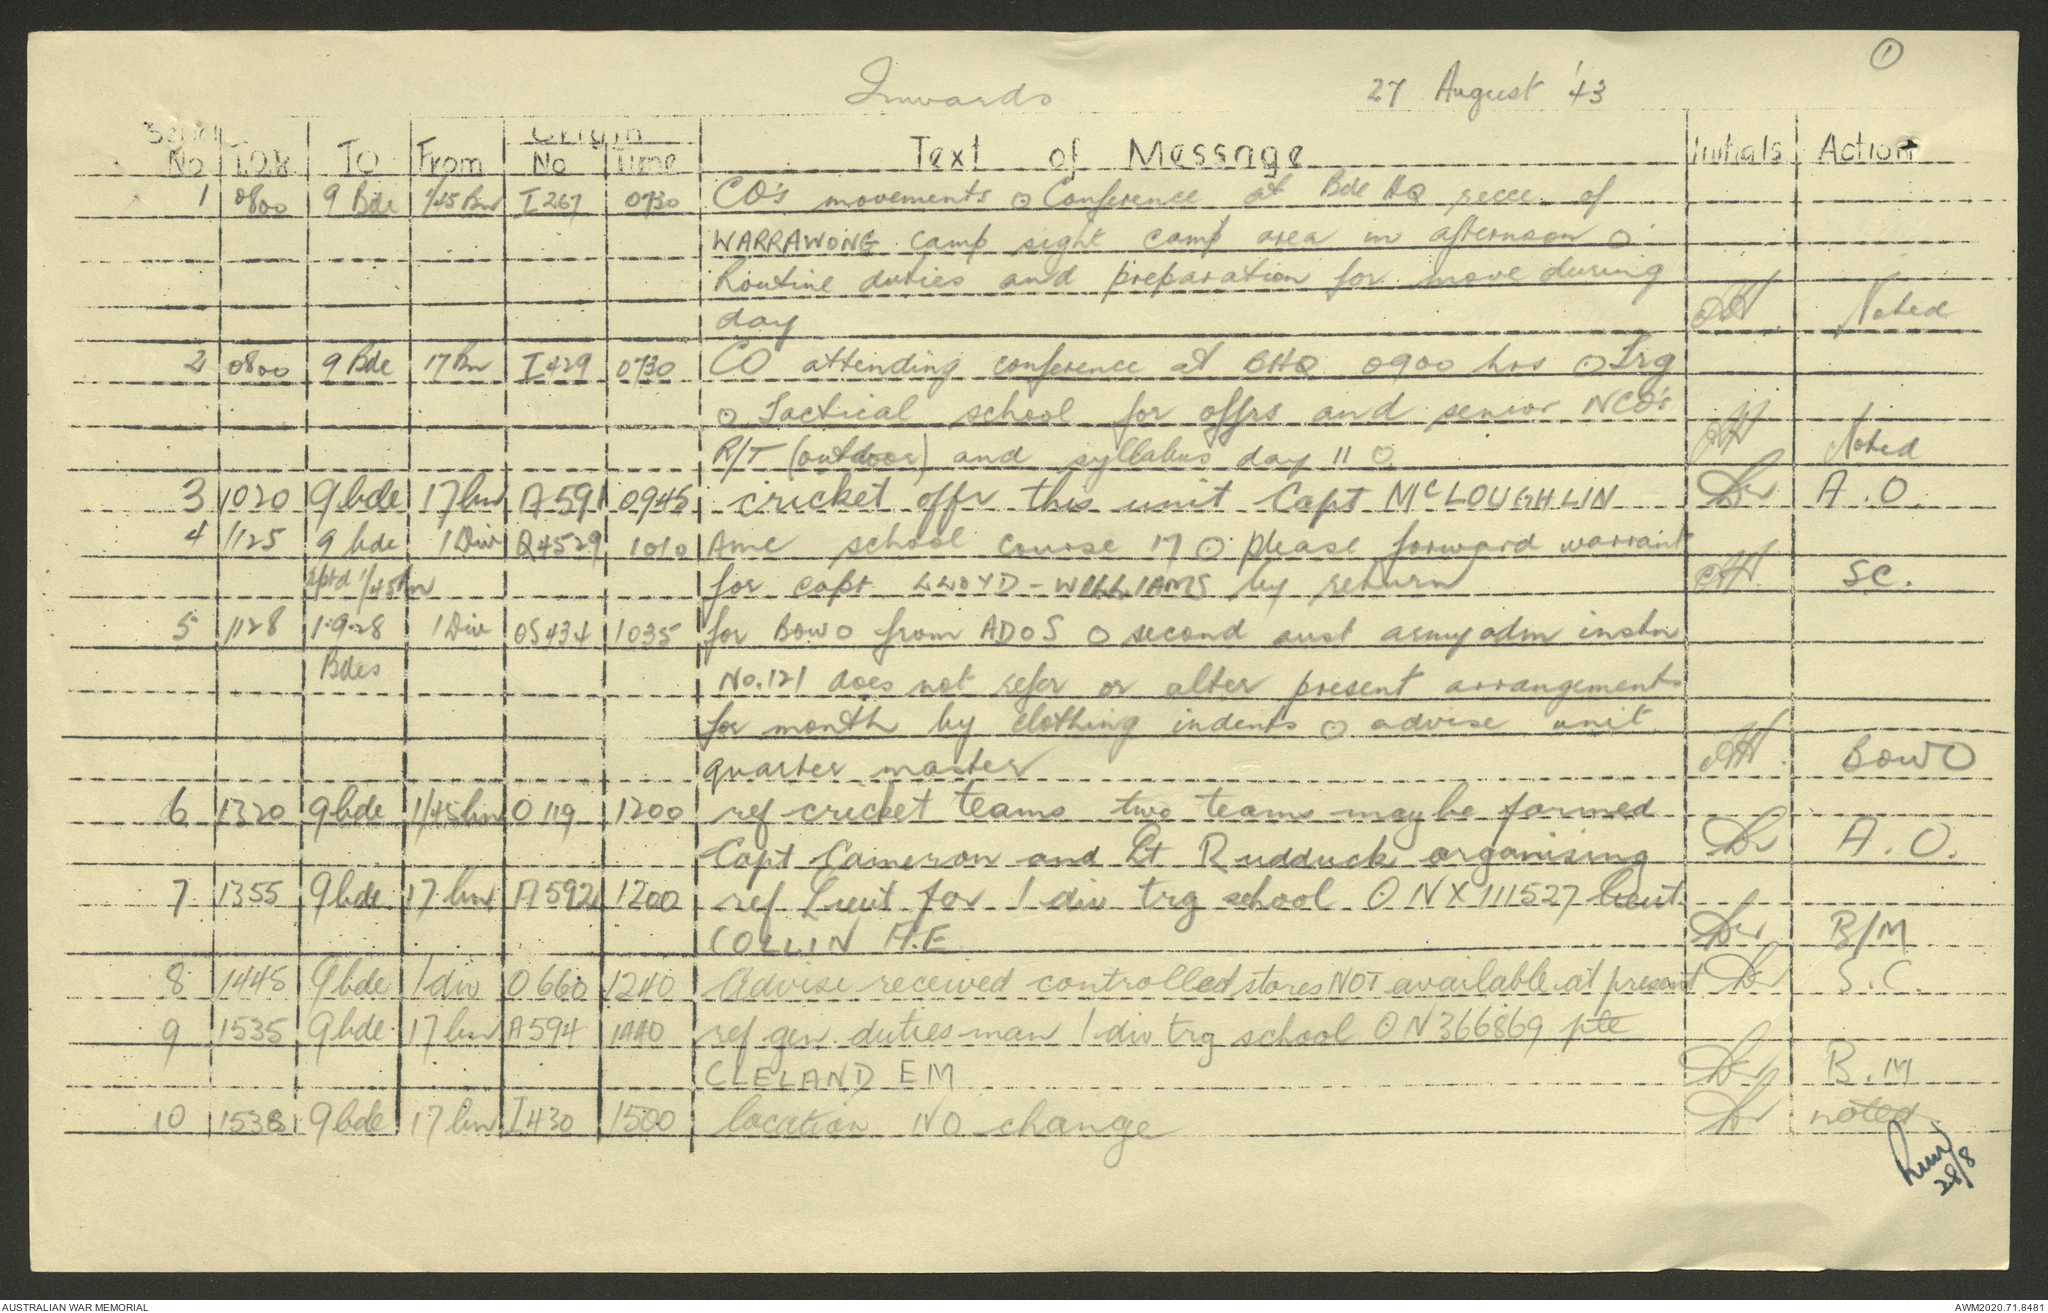 1
Inwards 27 August '43
Serial No T.O.R. TO From Origin No Time Text of Message Initials Action
1 0800 9 Bde 1/45 Bn I 267 0730 CO's movements o Conference at Bde HQ recce of
WARRAWONG camp sight camp area in afternoon o
Routine duties and preparation for move during
day Noted
2 0800 9 Bde 17 Bn I 429 0730 CO attending conference at BHQ 0900 hrs o Trg
o Tactical school for offrs and senior NCO's
R/T (outdoor) and syllabus day 11 o Noted
3 1020 9 bde 17 bn A 591 0945 cricket offr this unit Capt McLOUGHLIN A.O.
4 1125 9 bde 1 Div Q4529 1010 Ame school course 17 o please forward warrant
rptd 1/45 bn for capt LLOYD-WILLIAMS by return SC.
5 1128 1.9.28 1 Div OS434 1035 for BOWO from ADOS o second aust army adm instn
Bdes No.121 does not refer or alter present arrangements
for month by clothing indents o advise unit
quarter master BOWO
6 1320 9 bde 1/45 bn O 119 1200 ref cricket teams two teams may be formed
Capt Cameron and Lt Rudduck organising A.O.
7 1355 9 bde 17 bn A 592 1200 ref Lieut for 1 div trg school O NX111527 lieut
COLLIN A.E. B/M
8 1445 9 bde 1 div O 660 1240 Advise received controlled stores NOT available at present S.C.
9 1535 9 bde 17 bn A 594 1440 ref gen duties man 1 div trg school O N366869 pte
CLELAND EM B.M
10 1538 9 bde 17 bn I 430 1500 location NO change noted
28/8
AUSTRALIAN WAR MEMORIAL AWM2020.71.8481